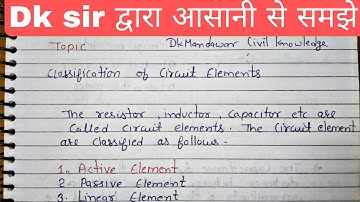 Dk sir द्वारा आसानी से समझे
Topic Dk Mandawar Civil Knowledge
Classification of Circuit Elements
The resistor, inductor, capacitor etc are
Called Circuit elements. The Circuit element
are classified as follows.
1. Active Element
2. Passive Element
3. Linear Element